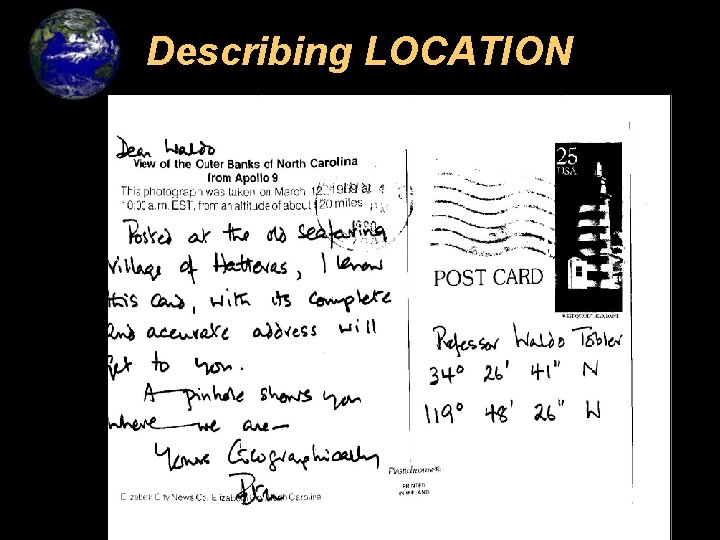 Describing LOCATION
Dear Waldo
View of the Outer Banks of North Carolina
from Apollo 9
This photograph was taken on March 12, at
10:00 a.m. EST, from an altitude of about 120 miles
Posted at the old seafaring
village of Hatteras, I know
this card, with its complete
and accurate address will
get to you.
A pinhole shows you
where we are
Yours Geographically
Elizabeth City News Co. Elizabeth North Carolina
25
USA
POST CARD
Professor Waldo Tobler
34° 26' 41" N
119° 48' 26" W
Plastichrome®
PRINTED
IN IRELAND